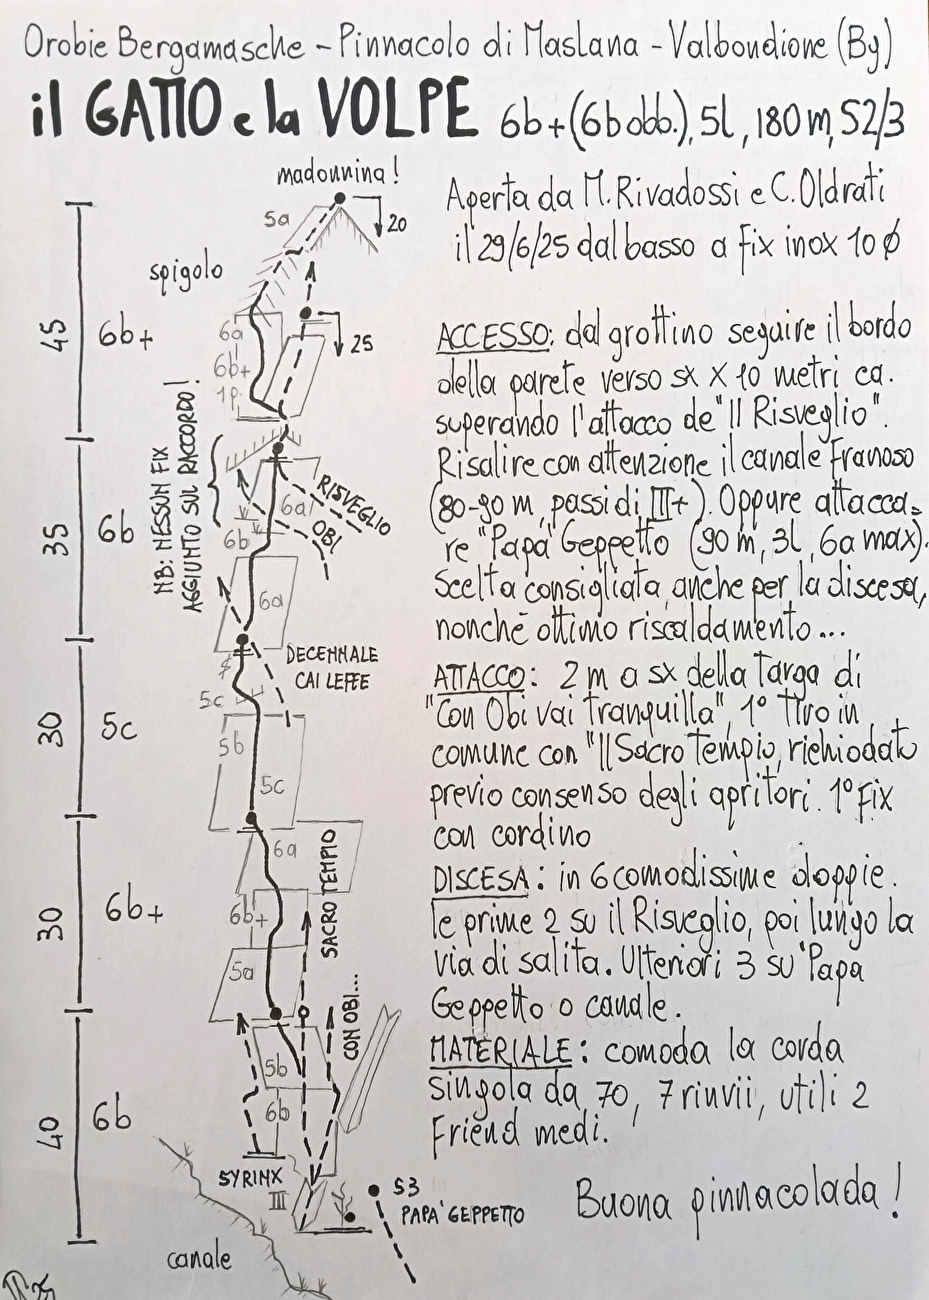 Orobie Bergamasche - Pinnacolo di Maslana - Valbondione (Bg)
il GATTO e la VOLPE 6b+ (6b obb.), 5l, 180 m, S2/3
madonnina!
5a
20
spigolo
45
6b+
6a
6b+
1p.
25
NB: NESSUN FIX
AGGIUNTO SUL RACCORDO!
35
6b
RISVEGLIO
OBI
6a
6b
6a
DECENNALE
CAI LEFFE
30
5c
5c
5b
5c
30
6b+
6a
6b+
5a
SACRO TEMPIO
CON OBI...
40
6b
5b
6b
SYRINX
III
S3
PAPA' GEPPETTO
canale
Aperta da M. Rivadossi e C. Oldrati
il 29/6/25 dal basso a fix inox 10 Ø
ACCESSO: dal grottino seguire il bordo
della parete verso sx x 10 metri ca.
superando l'attacco de "Il Risveglio".
Risalire con attenzione il canale franoso
(80-90 m, passi di III+). Oppure attacca=
re "Papà Geppetto (90 m, 3l, 6a max).
Scelta consigliata, anche per la discesa,
nonchè ottimo riscaldamento...
ATTACCO: 2 m a sx della targa di
"Con Obi vai tranquilla", 1° tiro in
comune con "Il Sacro Tempio, richiodato
previo consenso degli apritori. 1° fix
con cordino
DISCESA: in 6 comodissime doppie.
le prime 2 su il Risveglio, poi lungo la
via di salita. Ulteriori 3 su "Papa
Geppetto o canale.
MATERIALE: comoda la corda
singola da 70, 7 rinvii, utili 2
Friend medi.
Buona pinnacolada!